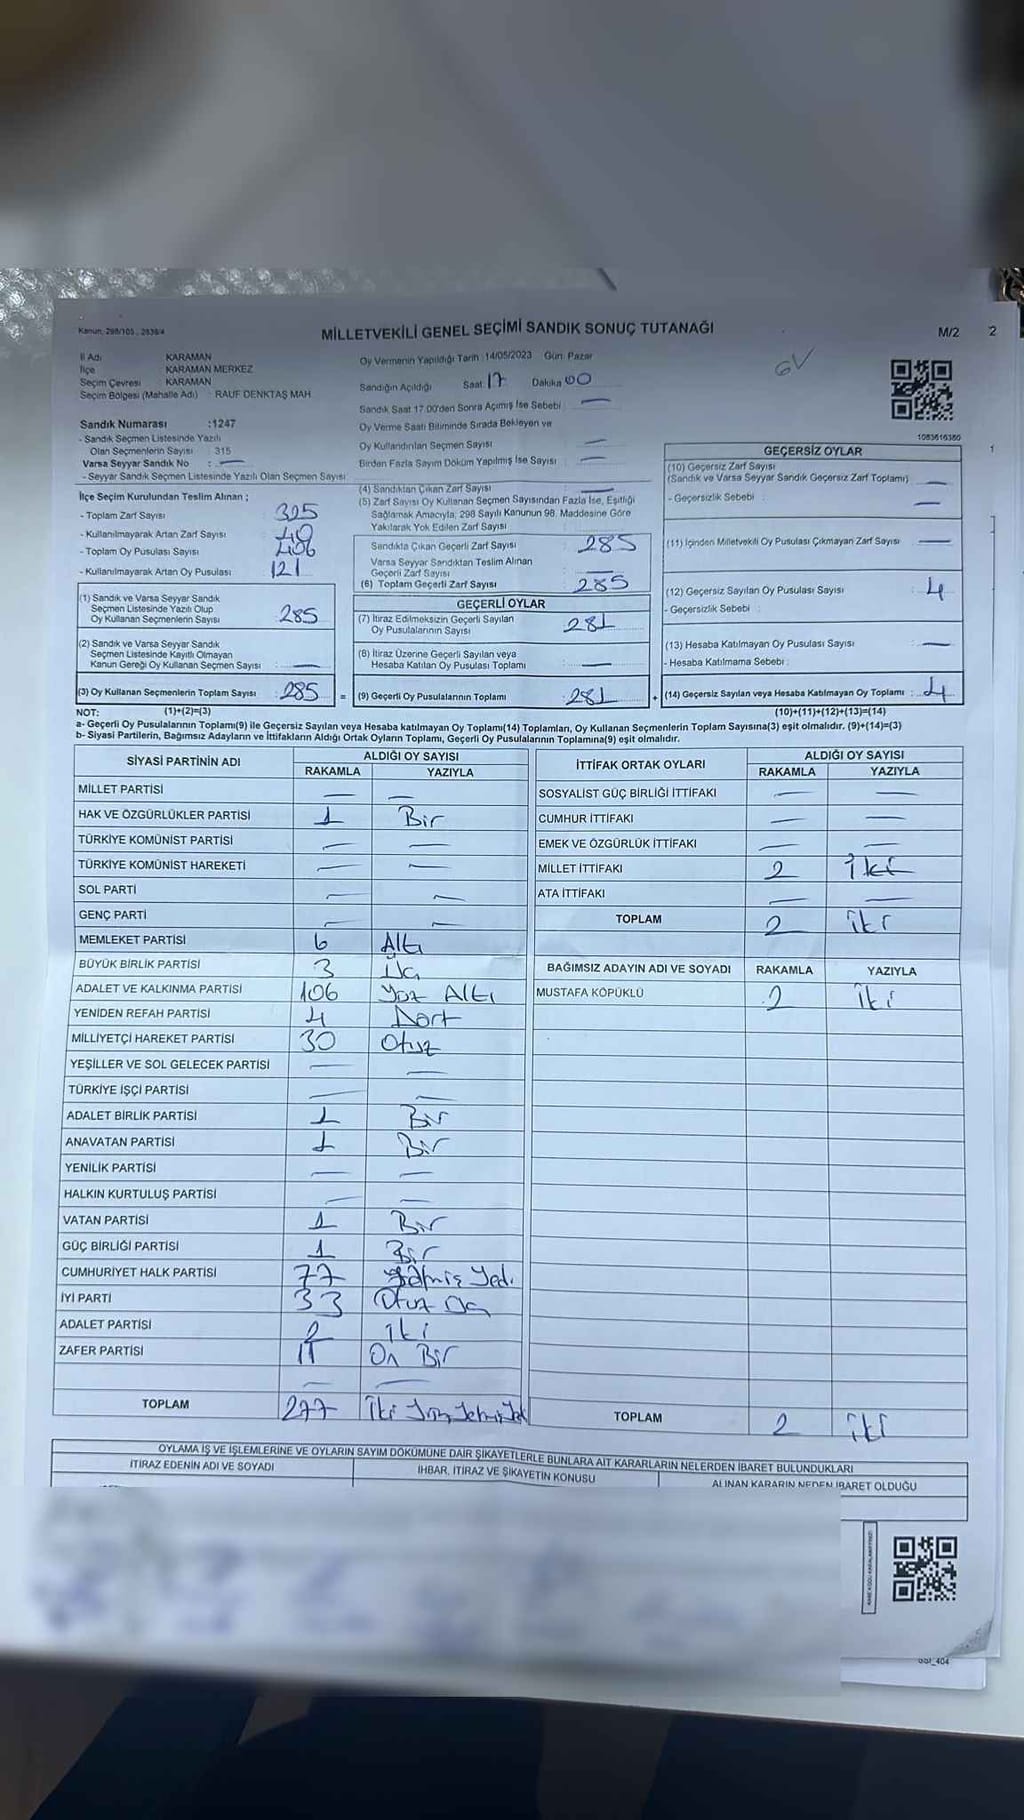 Kanun: 298/105 , 2839/4
MİLLETVEKİLİ GENEL SEÇİMİ SANDIK SONUÇ TUTANAĞI
M/2 2
İl Adı : KARAMAN
İlçe : KARAMAN MERKEZ
Seçim Çevresi : KARAMAN
Seçim Bölgesi (Mahalle Adı) : RAUF DENKTAŞ MAH
Sandık Numarası :1247
- Sandık Seçmen Listesinde Yazılı
Olan Seçmenlerin Sayısı : 315
Varsa Seyyar Sandık No : —
- Seyyar Sandık Seçmen Listesinde Yazılı Olan Seçmen Sayısı
İlçe Seçim Kurulundan Teslim Alınan ;
- Toplam Zarf Sayısı 325
- Kullanılmayarak Artan Zarf Sayısı 40
- Toplam Oy Pusulası Sayısı 406
- Kullanılmayarak Artan Oy Pusulası 121
(1) Sandık ve Varsa Seyyar Sandık
Seçmen Listesinde Yazılı Olup
Oy Kullanan Seçmenlerin Sayısı : 285
(2) Sandık ve Varsa Seyyar Sandık
Seçmen Listesinde Kayıtlı Olmayan
Kanun Gereği Oy Kullanan Seçmen Sayısı : —
(3) Oy Kullanan Seçmenlerin Toplam Sayısı : 285 =
Oy Vermenin Yapıldığı Tarih :14/05/2023 Gün: Pazar
Sandığın Açıldığı Saat 17 Dakika 00
Sandık Saat 17.00'den Sonra Açılmış İse Sebebi —
Oy Verme Saati Bitiminde Sırada Bekleyen ve
Oy Kullandırılan Seçmen Sayısı —
Birden Fazla Sayım Döküm Yapılmış İse Sayısı —
(4) Sandıktan Çıkan Zarf Sayısı —
(5) Zarf Sayısı Oy Kullanan Seçmen Sayısından Fazla İse, Eşitliği
Sağlamak Amacıyla, 298 Sayılı Kanunun 98. Maddesine Göre
Yakılarak Yok Edilen Zarf Sayısı
Sandıkta Çıkan Geçerli Zarf Sayısı : 285
Varsa Seyyar Sandıktan Teslim Alınan
Geçerli Zarf Sayısı : —
(6) Toplam Geçerli Zarf Sayısı : 285
GEÇERLİ OYLAR
(7) İtiraz Edilmeksizin Geçerli Sayılan
Oy Pusulalarının Sayısı : 281
(8) İtiraz Üzerine Geçerli Sayılan veya
Hesaba Katılan Oy Pusulası Toplamı : —
(9) Geçerli Oy Pusulalarının Toplamı : 281 +
GV
1083616380
GEÇERSİZ OYLAR
(10) Geçersiz Zarf Sayısı
(Sandık ve Varsa Seyyar Sandık Geçersiz Zarf Toplamı) : —
- Geçersizlik Sebebi : —
(11) İçinden Milletvekili Oy Pusulası Çıkmayan Zarf Sayısı : —
(12) Geçersiz Sayılan Oy Pusulası Sayısı : 4
- Geçersizlik Sebebi :
(13) Hesaba Katılmayan Oy Pusulası Sayısı : —
- Hesaba Katılmama Sebebi :
(14) Geçersiz Sayılan veya Hesaba Katılmayan Oy Toplamı : 4
NOT: (1)+(2)=(3) (10)+(11)+(12)+(13)=(14)
a- Geçerli Oy Pusulalarının Toplamı(9) ile Geçersiz Sayılan veya Hesaba katılmayan Oy Toplamı(14) Toplamları, Oy Kullanan Seçmenlerin Toplam Sayısına(3) eşit olmalıdır. (9)+(14)=(3)
b- Siyasi Partilerin, Bağımsız Adayların ve İttifakların Aldığı Ortak Oyların Toplamı, Geçerli Oy Pusulalarının Toplamına(9) eşit olmalıdır.
SİYASİ PARTİNİN ADI ALDIĞI OY SAYISI
RAKAMLA YAZIYLA
MİLLET PARTİSİ — —
HAK VE ÖZGÜRLÜKLER PARTİSİ 1 Bir
TÜRKİYE KOMÜNİST PARTİSİ — —
TÜRKİYE KOMÜNİST HAREKETİ — —
SOL PARTİ — —
GENÇ PARTİ — —
MEMLEKET PARTİSİ 6 Altı
BÜYÜK BİRLİK PARTİSİ 3 Üç
ADALET VE KALKINMA PARTİSİ 106 Yüz Altı
YENİDEN REFAH PARTİSİ 4 Dört
MİLLİYETÇİ HAREKET PARTİSİ 30 Otuz
YEŞİLLER VE SOL GELECEK PARTİSİ — —
TÜRKİYE İŞÇİ PARTİSİ — —
ADALET BİRLİK PARTİSİ 1 Bir
ANAVATAN PARTİSİ 1 Bir
YENİLİK PARTİSİ — —
HALKIN KURTULUŞ PARTİSİ — —
VATAN PARTİSİ 1 Bir
GÜÇ BİRLİĞİ PARTİSİ 1 Bir
CUMHURİYET HALK PARTİSİ 77 Yetmiş Yedi
İYİ PARTİ 33 Otuz Üç
ADALET PARTİSİ 2 İki
ZAFER PARTİSİ 11 On Bir
— —
TOPLAM 277 İki Yüz Yetmiş Yedi
İTTİFAK ORTAK OYLARI ALDIĞI OY SAYISI
RAKAMLA YAZIYLA
SOSYALİST GÜÇ BİRLİĞİ İTTİFAKI — —
CUMHUR İTTİFAKI — —
EMEK VE ÖZGÜRLÜK İTTİFAKI — —
MİLLET İTTİFAKI 2 İki
ATA İTTİFAKI — —
TOPLAM 2 iki
BAĞIMSIZ ADAYIN ADI VE SOYADI RAKAMLA YAZIYLA
MUSTAFA KÖPÜKLÜ 2 İki
TOPLAM 2 iki
OYLAMA İŞ VE İŞLEMLERİNE VE OYLARIN SAYIM DÖKÜMÜNE DAİR ŞİKAYETLERLE BUNLARA AİT KARARLARIN NELERDEN İBARET BULUNDUKLARI
İTİRAZ EDENİN ADI VE SOYADI İHBAR, İTİRAZ VE ŞİKAYETİN KONUSU ALINAN KARARIN NEDEN İBARET OLDUĞU